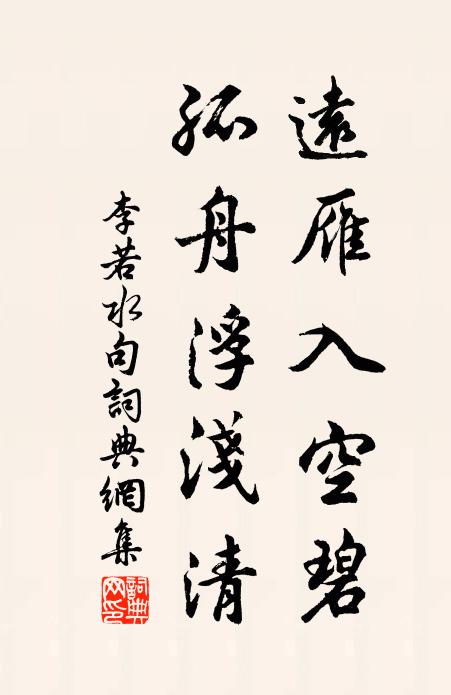 遠雁入空碧
孤舟浮淺清
李若水句詞典網集
詞典網印